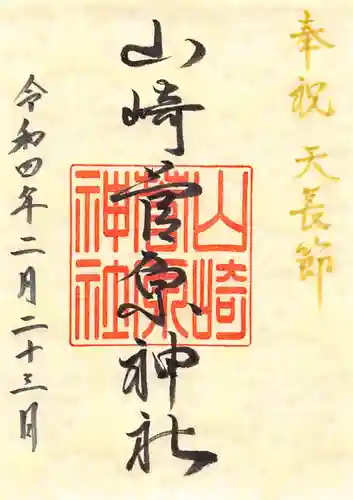 奉祝 天長節
山崎菅原神社
山崎
菅原
神社
令和四年二月二十三日